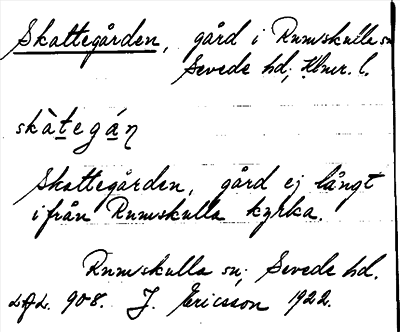 Skattegården, gård i Rumskulla sn
Sevede hd; Klmr. l.
skàtegán
Skattegården, gård ej långt
ifrån Rumskulla kyrka.
Rumskulla sn; Sevede hd.
LAL. 908. J. Ericsson 1922.